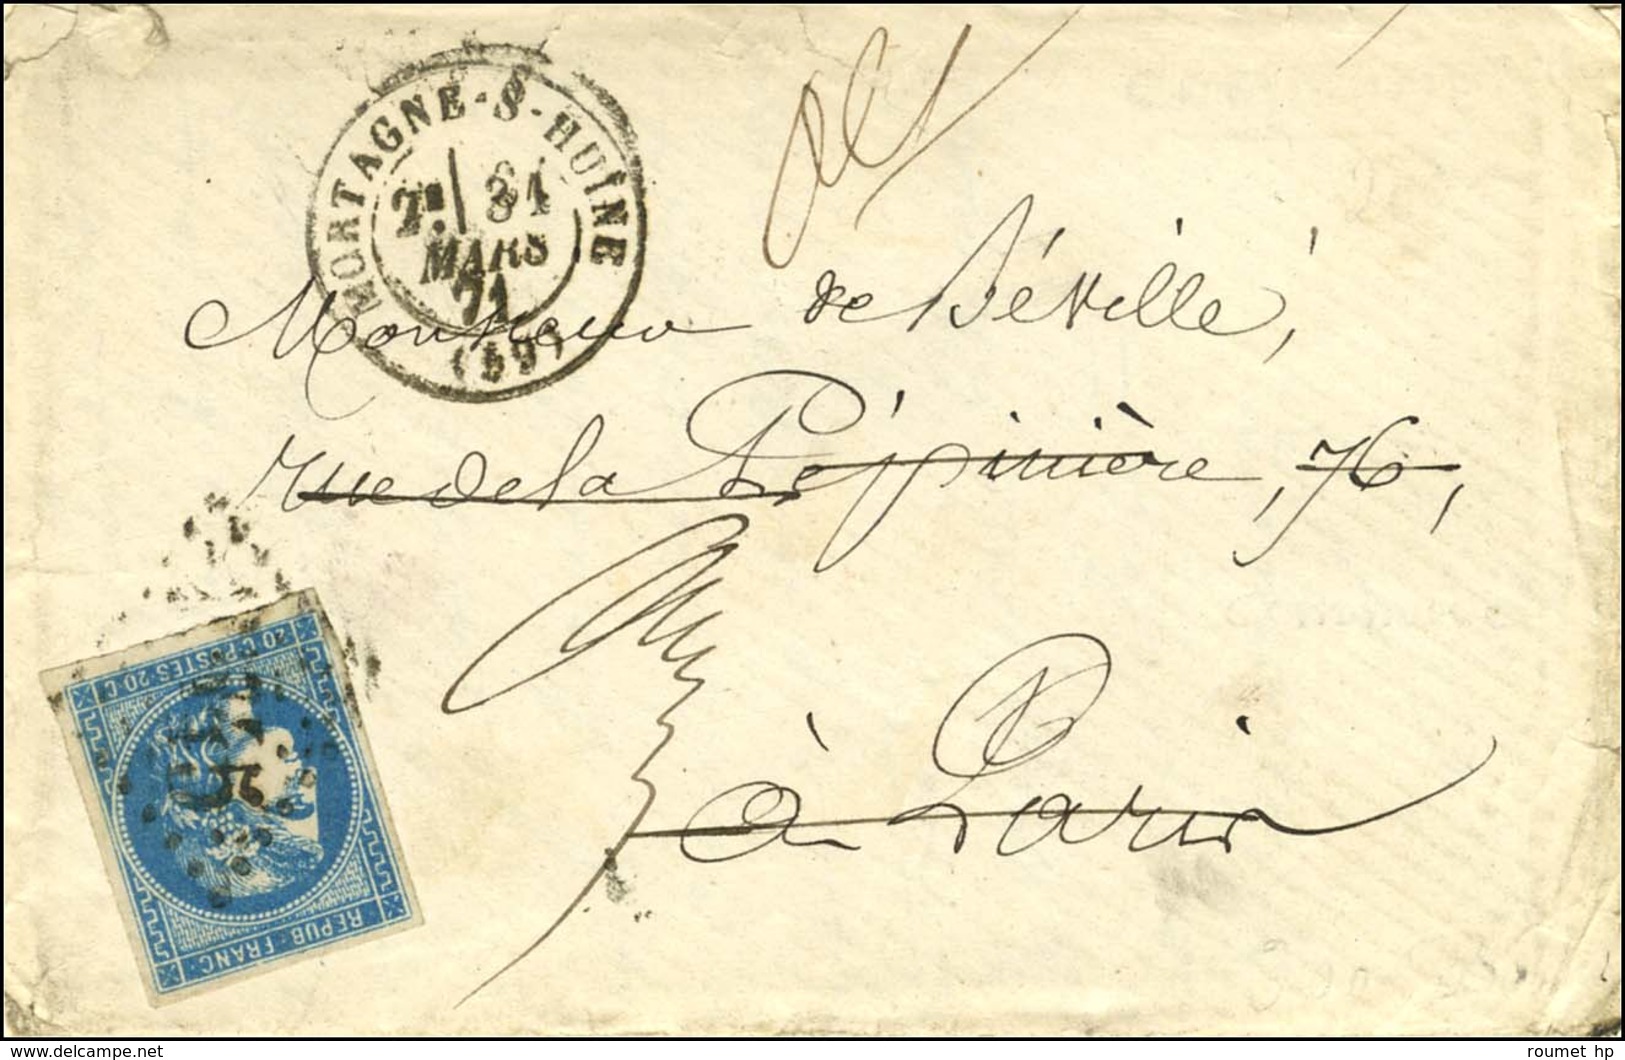 MORTAGNE-S-HUÎNE
2E 31
MARS
71
(59)
Monsieur de Séville,
rue de la Pépinière, 76,
à Paris
20 C. POSTES 20 C.
REPUB. FRANC.
www.delcampe.net
roumet hp